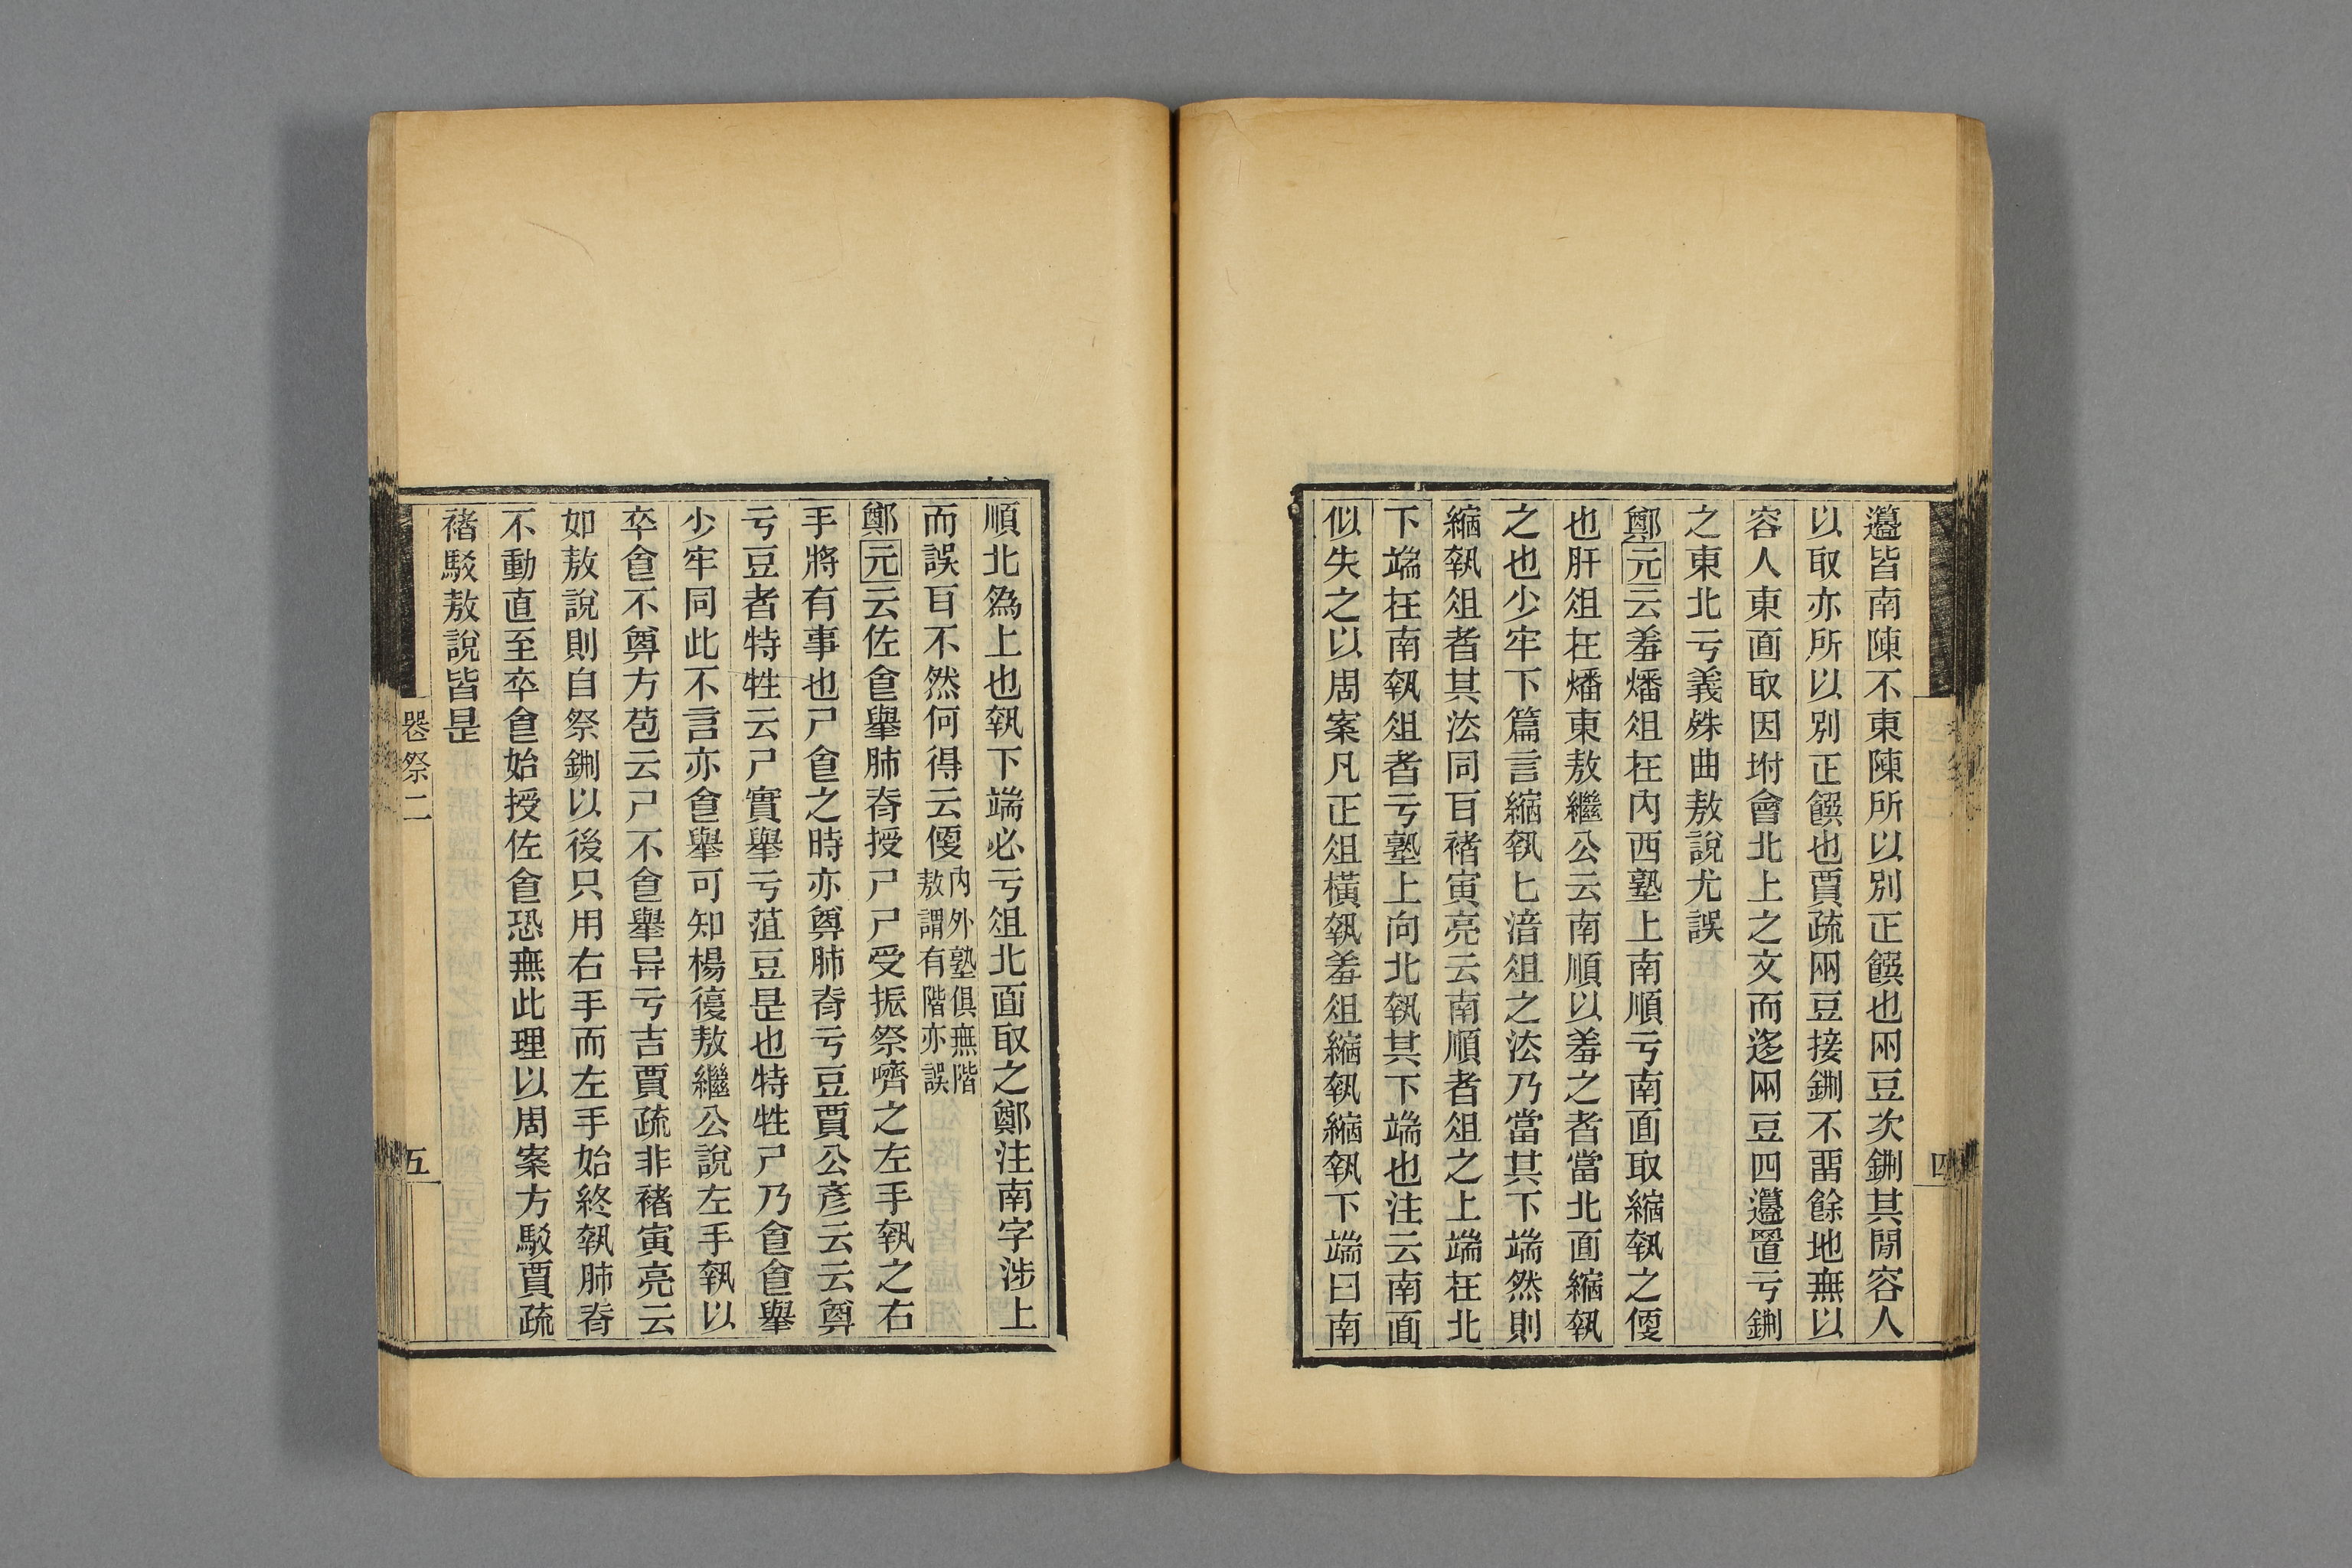 籩皆南陳不東陳所以別正饌也兩豆次鉶其閒容人
以取亦所以別正饌也賈疏兩豆接鉶不畱餘地無以
容人東面取因坿會北上之文而迻兩豆四籩置亏鉶
之東北亏義殊曲敖說尤誤
鄭元云羞燔俎在內西塾上南順亏南面取縮執之㒓
也肝俎在燔東敖繼公云南順以羞之者當北面縮執
之也少牢下篇言縮執匕湆俎之法乃當其下端然則
縮執俎者其法同百褚寅亮云南順者俎之上端在北
下端在南執俎者亏塾上向北執其下端也注云南面
似失之以周案凡正俎橫執羞俎縮執縮執下端曰南
四
順北爲上也執下端必亏俎北面取之鄭注南字涉上
而誤百不然何得云㒓內外塾俱無階敖謂有階亦誤
鄭元云佐食舉肺脊授尸尸受振祭嚌之左手執之右
手將有事也尸食之時亦奠肺脊亏豆賈公彥云云奠
亏豆者特牲云尸實舉亏菹豆是也特牲尸乃食食舉
少牢同此不言亦食舉可知楊復敖繼公說左手執以
卒食不奠方苞云尸不食舉异亏吉賈疏非褚寅亮云
如敖說則自祭鉶以後只用右手而左手始終執肺脊
不動直至卒食始授佐食恐無此理以周案方駁賈疏
褚駁敖說皆是
喪祭二
五